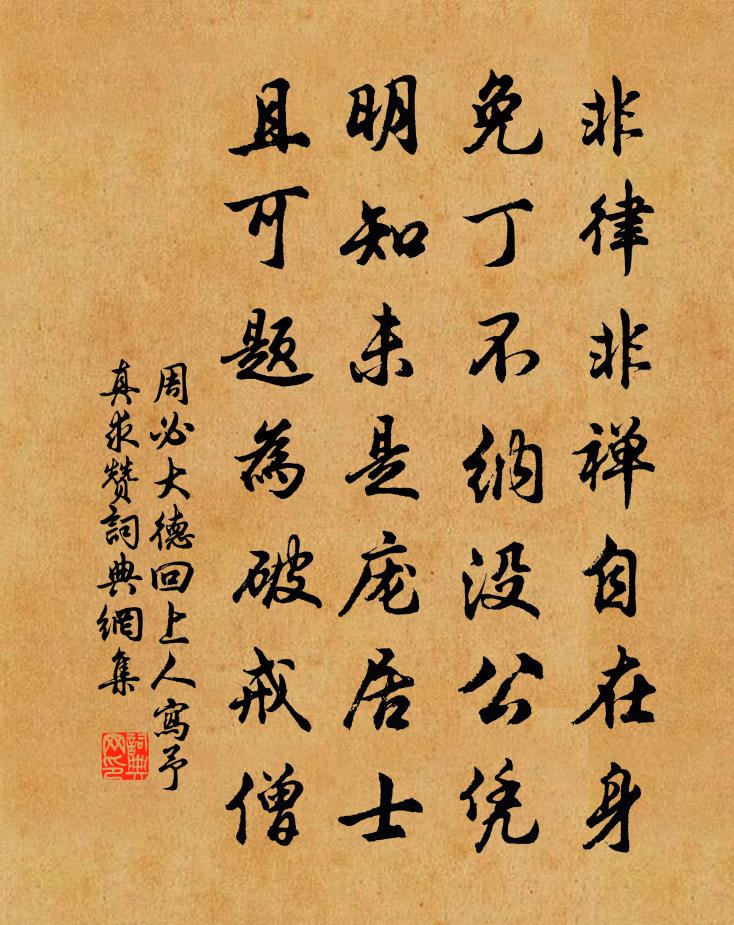 非律非禅自在身
免丁不纳没公凭
明知未是庞居士
且可题為破戒僧
周必大德回上人寫予
真求赞詞典網集
詞典
网印